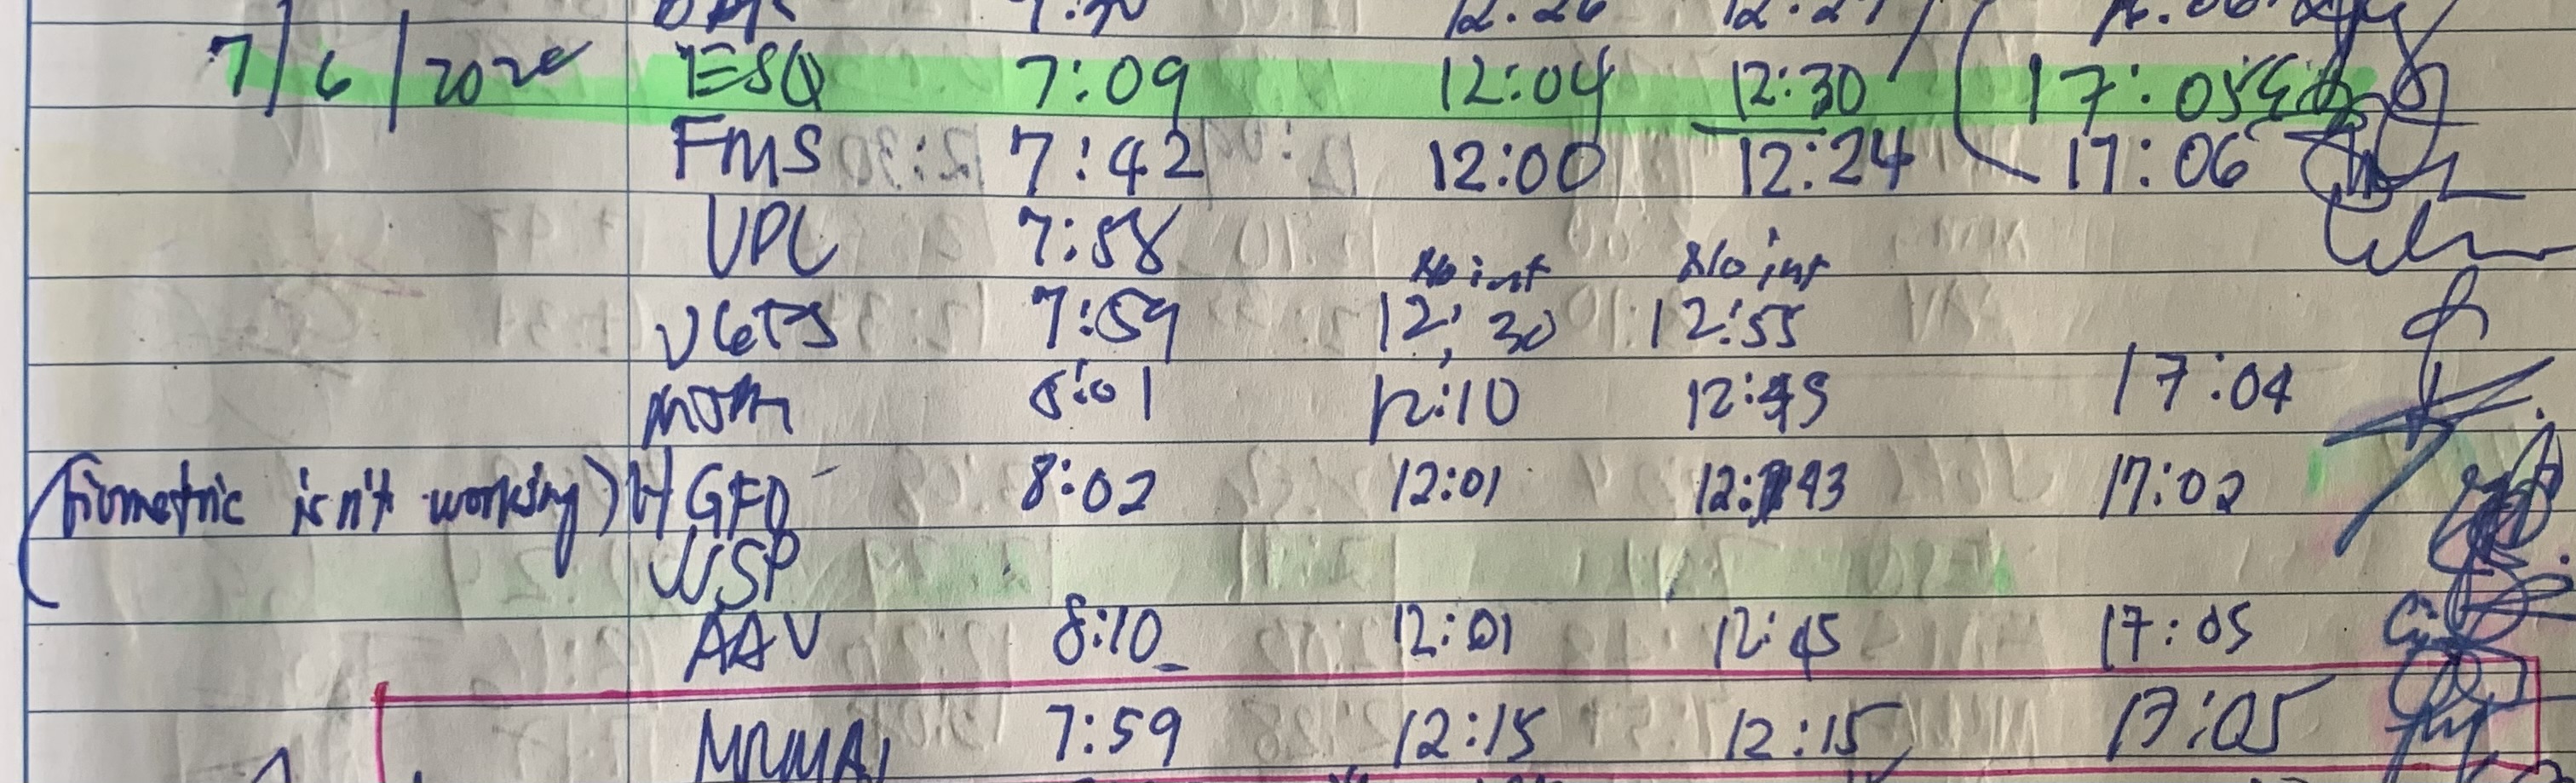 7/6/202 ESQ 7:09 12:04 12:30 17:05
FMS 7:42 12:00 12:24 17:06
VPL 7:58
No int No int
7:59 12:30 12:55
8:01 12:10 12:45 17:04
(Biometric isn't working) GFD 8:02 12:01 12:43 17:02
WSP
AAV 8:10 12:01 12:45 17:05
7:59 12:15 12:15 17:05